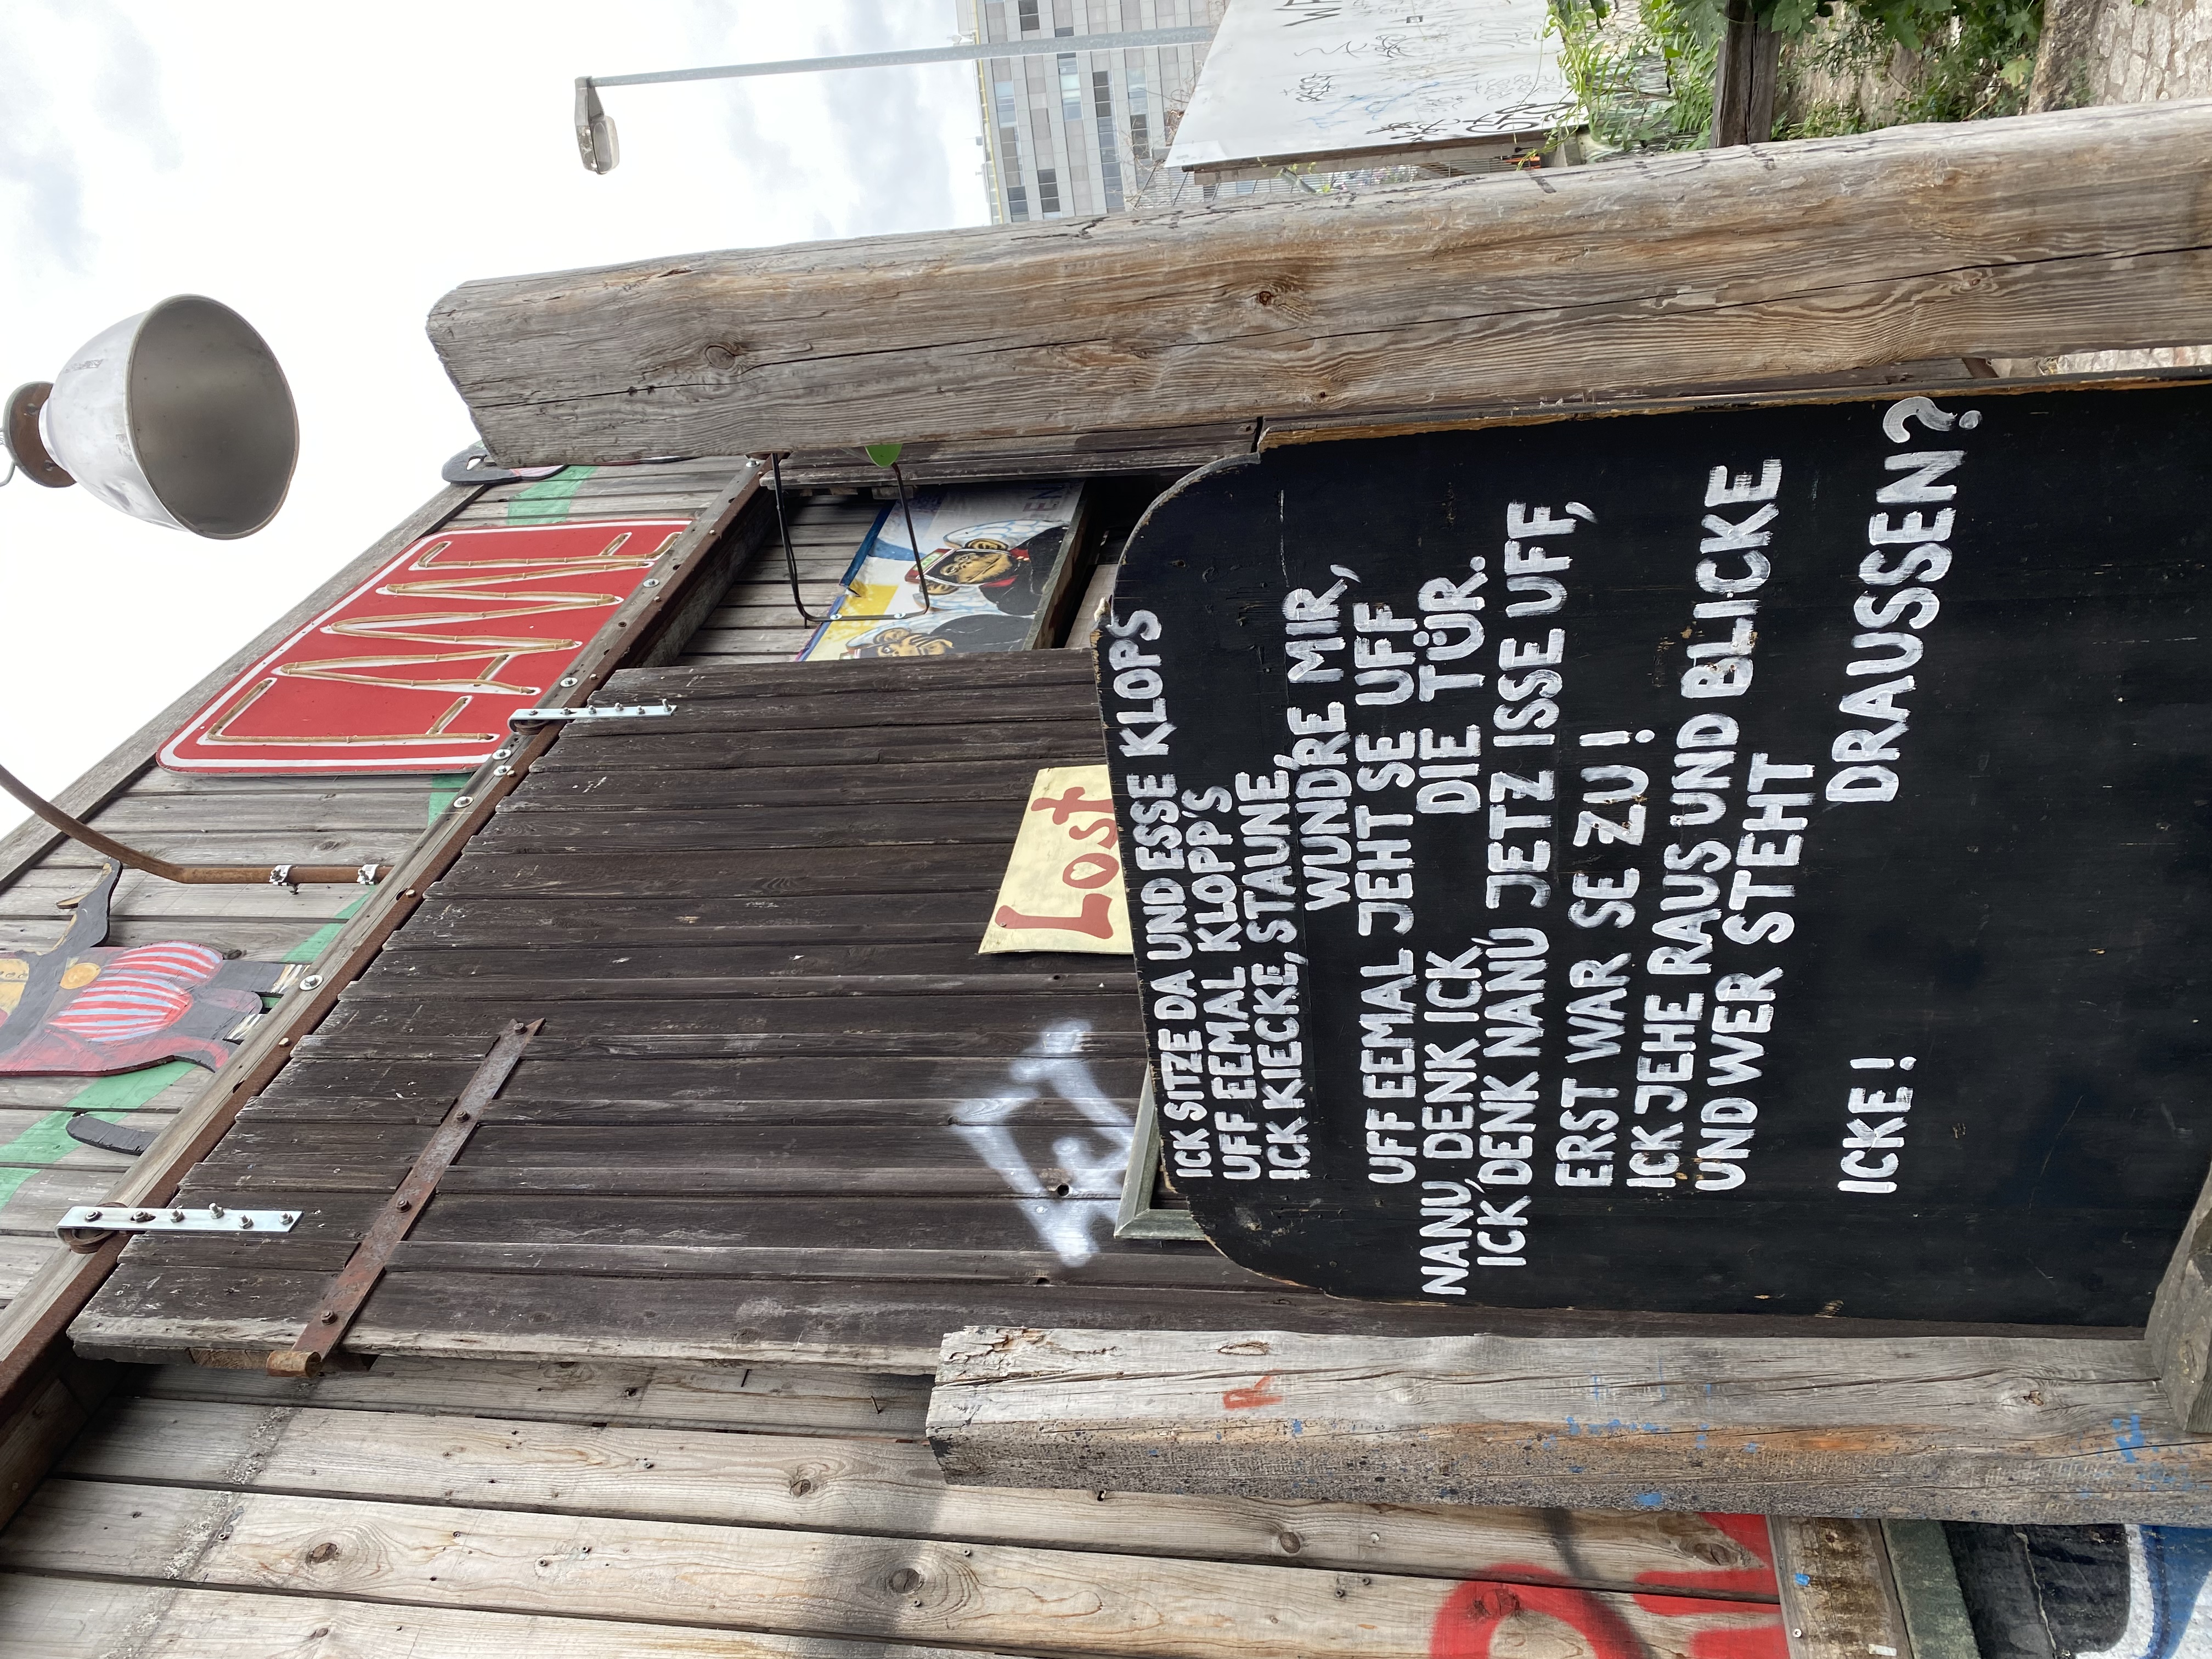 FAME
Lost
ICK SITZE DA UND ESSE KLOPS
UFF EEMAL KLOPP'S
ICK KIECKE, STAUNE,
WUNDRE MIR,
UFF EEMAL JEHT SE UFF
DIE TÜR.
NANU, DENK ICK,
ICK DENK NANU JETZ ISSE UFF,
ERST WAR SE ZU!
ICK JEHE RAUS UND BLICKE
UND WER STEHT
DRAUSSEN?
ICKE!
R